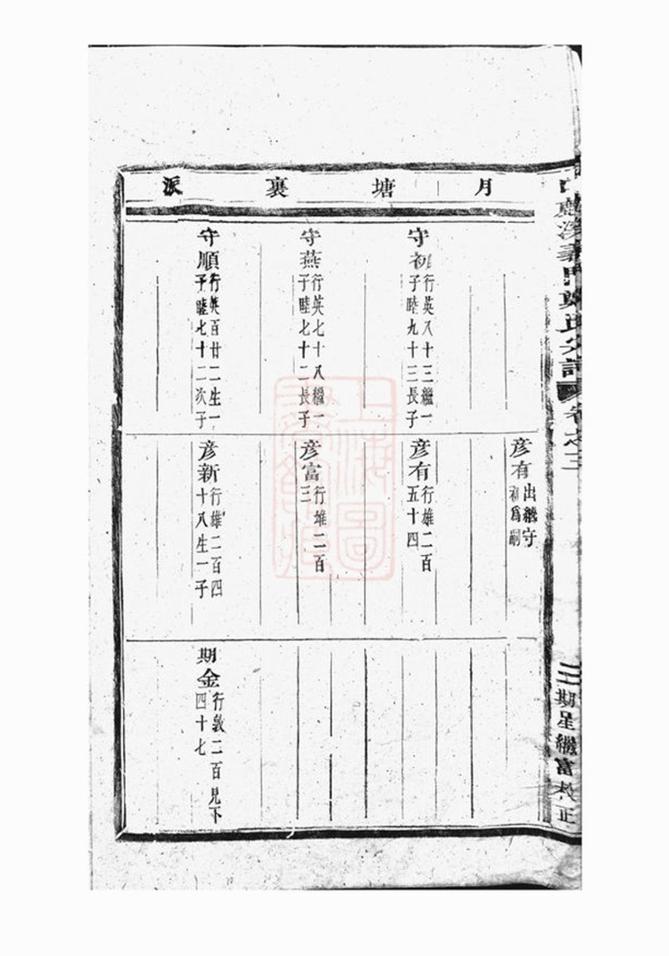 月塘裏派
彥有出繼守
初爲嗣
守初行英八十三繼一
子睦九十三長子
彥有行雄二百
五十四
守燕行英七十八繼一
子睦七十二長子
彥富行雄二百
三
守順行英百廿二生一
子睦七十二次子
彥新行雄二百四
十八生一子
期金行敦二百見下
四十七
義門鄭氏分譜
卷之三
期星繼富校正